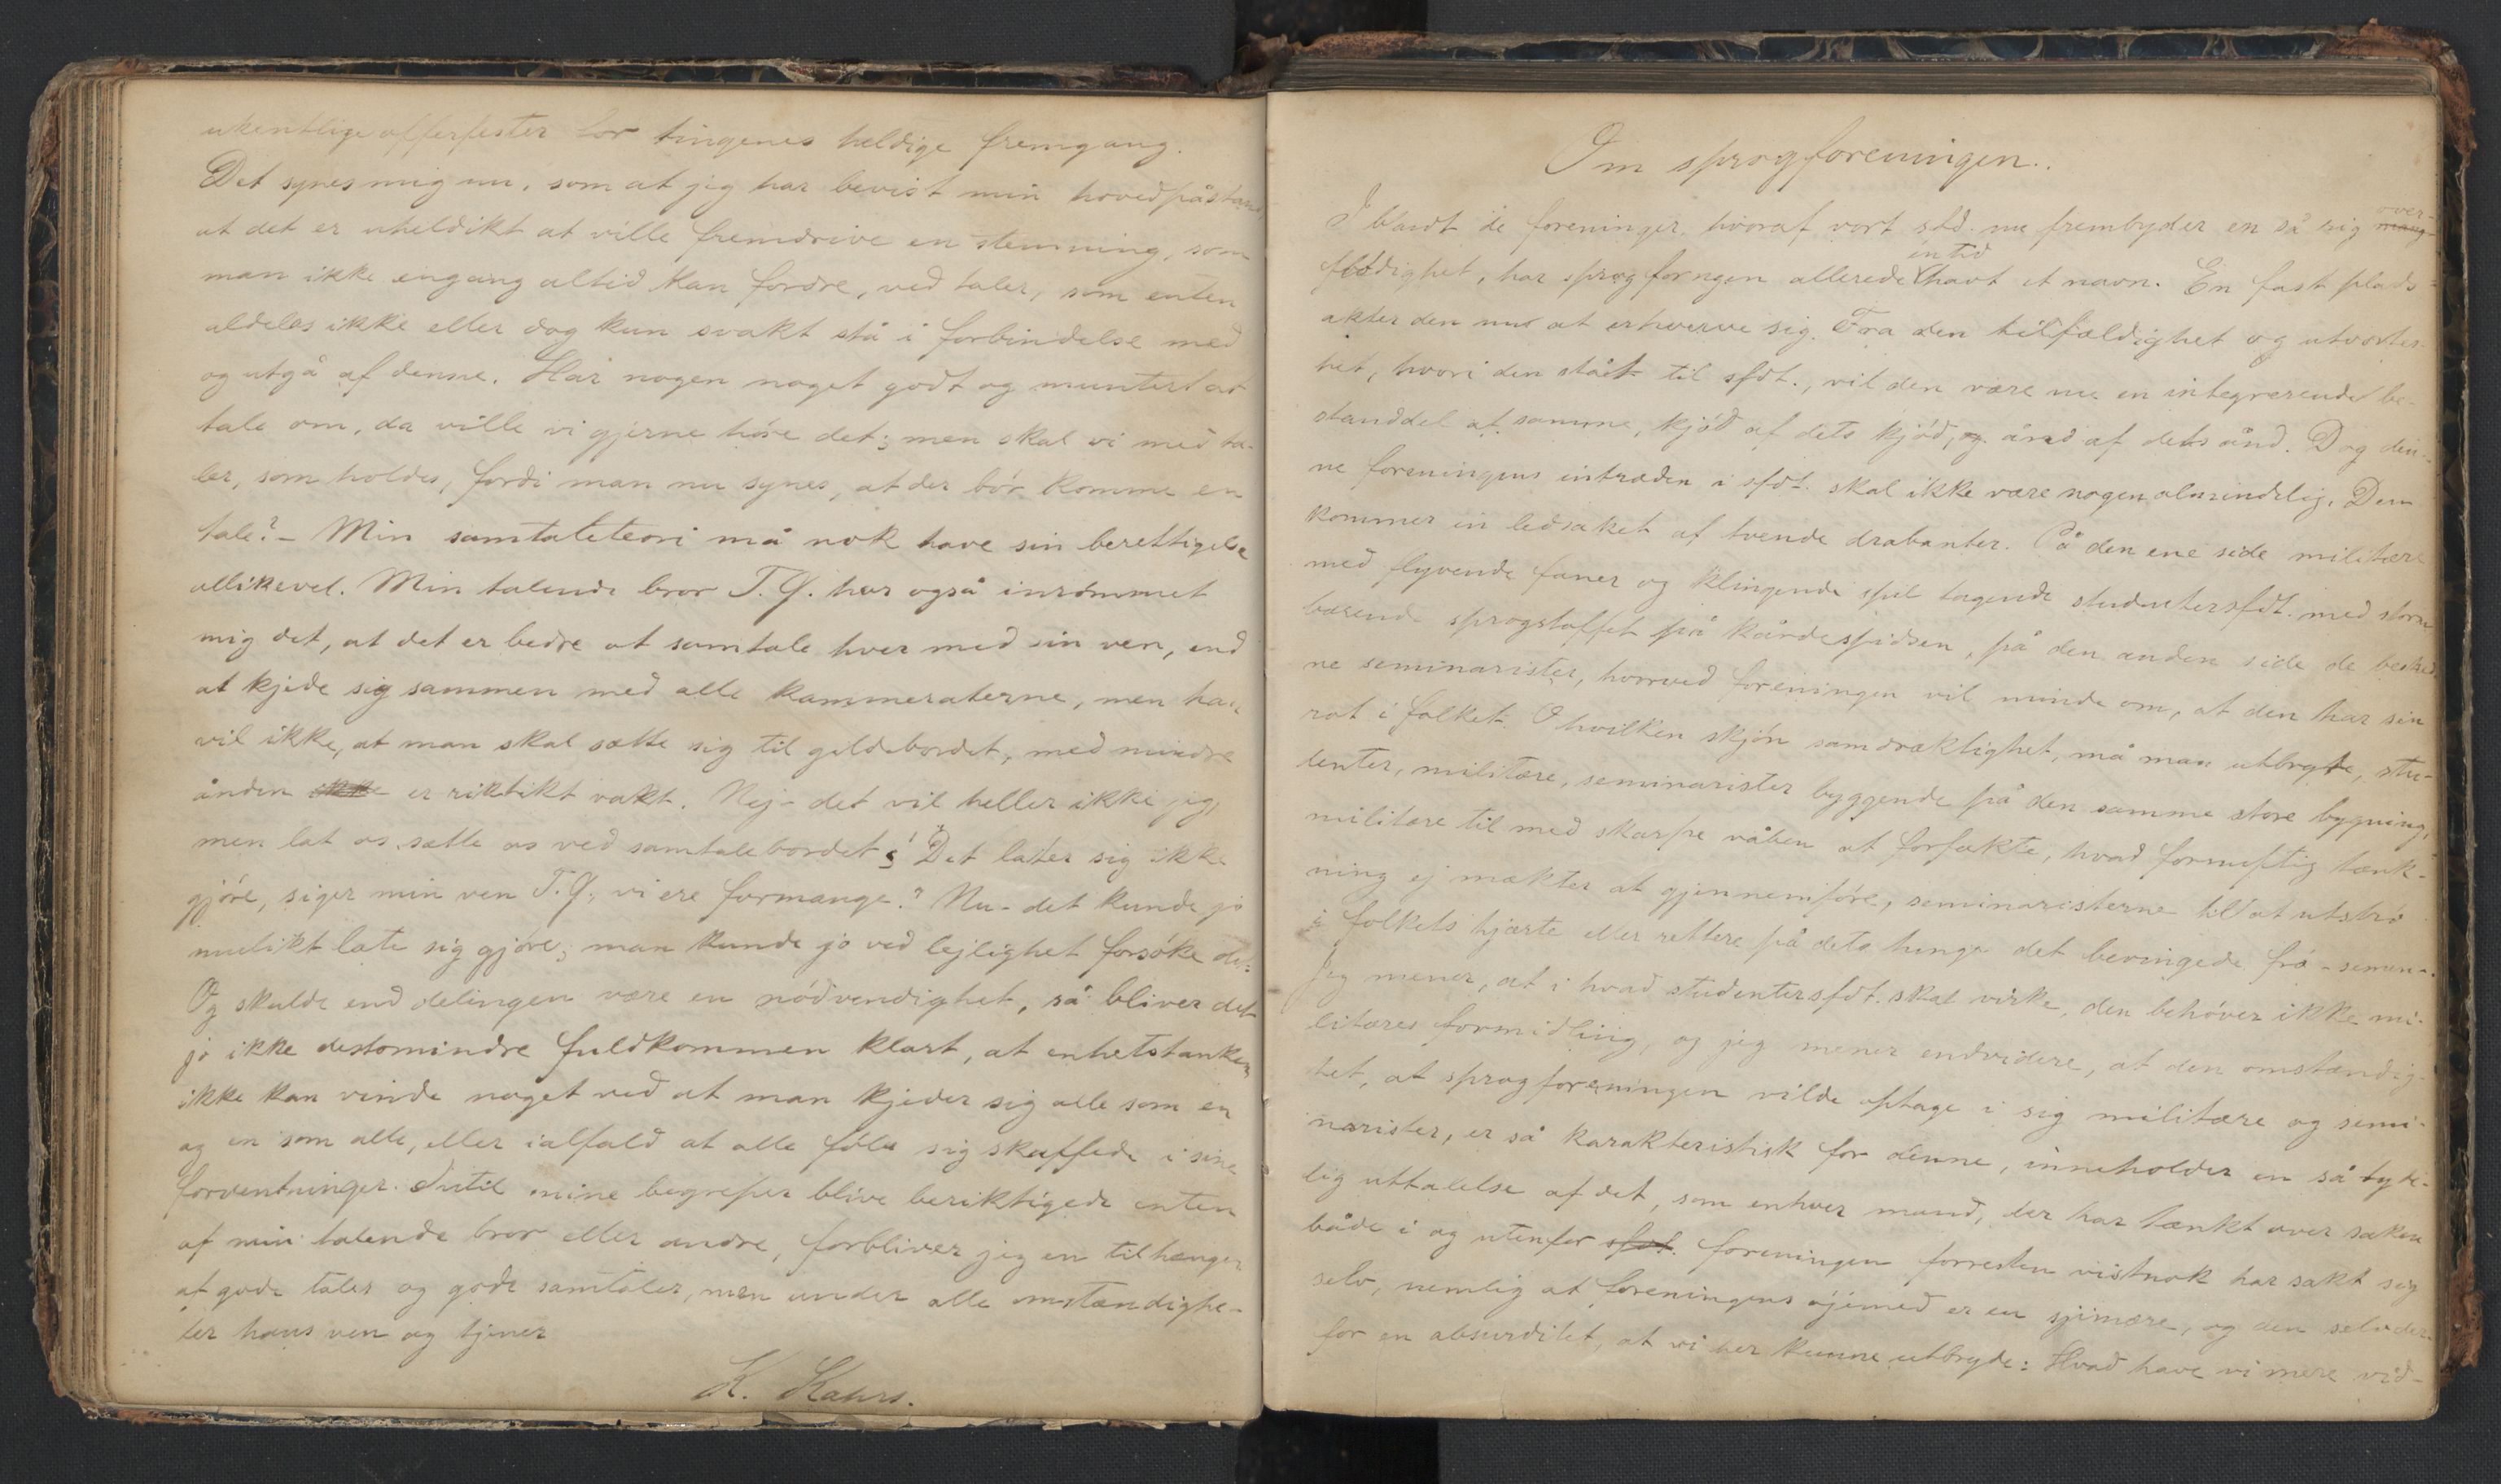 ukentlige offerfester for tingenes heldige fremgang.
Det synes mig nu, som at jeg har bevist min hovedpåstand,
at det er uheldikt at ville fremdrive en stemning, som
man ikke engang altid kan fordre, ved taler, som enten
aldeles ikke eller dog kun svakt stå i forbindelse med
og utgå af denne. Har nogen noget godt og muntert at
tale om, da ville vi gjerne høre det; men skal vi med ta-
ler, som holdes, fordi man nu synes, at der bør komme en
tale? - Min samtaleteori må nok have sin berettigelse
allikevel. Min talende bror T. G. har også inrømmet
mig det, at det er bedre at samtale hver med sin ven, end
at kjede sig sammen med alle kammeraterne, men han
vil ikke, at man skal sætte sig til gildebordet, med mindre
ånden ikke er riktikt vakt. Nej - det vil heller ikke jeg,
men lat os sætte os ved samtalebordet! "Det later sig ikke
gjøre, siger min ven T. G., vi ere formange." Nu - det kunde jo
mulikt late sig gjøre; man kunde jo ved lejlighet forsøke det.
Og skulde end delingen være en nødvendighet, så bliver det
jo ikke destomindre fuldkommen klart, at enhetstanken
ikke kan vinde noget ved at man kjeder sig alle som en
og en som alle, eller ialfald at alle føle sig skuffede i sine
forventninger. Intil mine begreper blive beriktigede enten
af min talende bror eller andre, forbliver jeg en tilhænger
af gode taler og gode samtaler, men under alle omstændighe-
ter hans ven og tjener
K. Kahrs.
Om sprogforeningen.
Iblandt de foreninger, hvoraf vort sfd. nu frembyder en så rig mang- over-
flødighet, har sprogforngen allerede en tid havt et navn. En fast plads
akter den nu at erhverve sig. Fra den tilfældighet og utvortes-
het, hvori den stået til sfdt., vil den være nu en integrerende be-
standdel af samme, kjød af dets kjød, og ånd af dets ånd. Dog den-
ne foreningens intræden i sfdt. skal ikke være nogen almindelig. Den
kommer in ledsaket af tvende drabanter. På den ene side militære
med flyvende faner og klingende spil tagende studentersfdt. med storm
bærende sprogstoffet på kårdespidsen, på den anden side de beskede-
ne seminarister, hvorved foreningen vil minde om, at den har sin
rot i folket. O hvilken skjøn samdræktighet, må man utbryte, stu-
denter, militære, seminarister byggende på den samme store bygning,
militære til med skarpe våben at forfækte, hvad fornuftig tænk-
ning ej mækter at gjennemføre, seminaristerne til at utstrø
i folkets hjærte eller rettere på dets tunge det bevingede frø-semen-.
Jeg mener, at i hvad studentersfdt. skal virke, den behøver ikke mi-
litæres formidling, og jeg mener endvidere, at den omstændig-
het, at sprogforeningen vilde optage i sig militære og semi-
narister, er så karakteristisk for denne, inneholder en så tyde-
lig uttalelse af det, som enhver mand, der har tænkt over saken
både i og utenfor sfdt. foreningen forresten vistnok har sakt sig
selv, nemlig at foreningens øjemed er en sjimære, og den selv der-
for en absurditet, at vi her kunne utbryde: Hvad have vi mere vid-